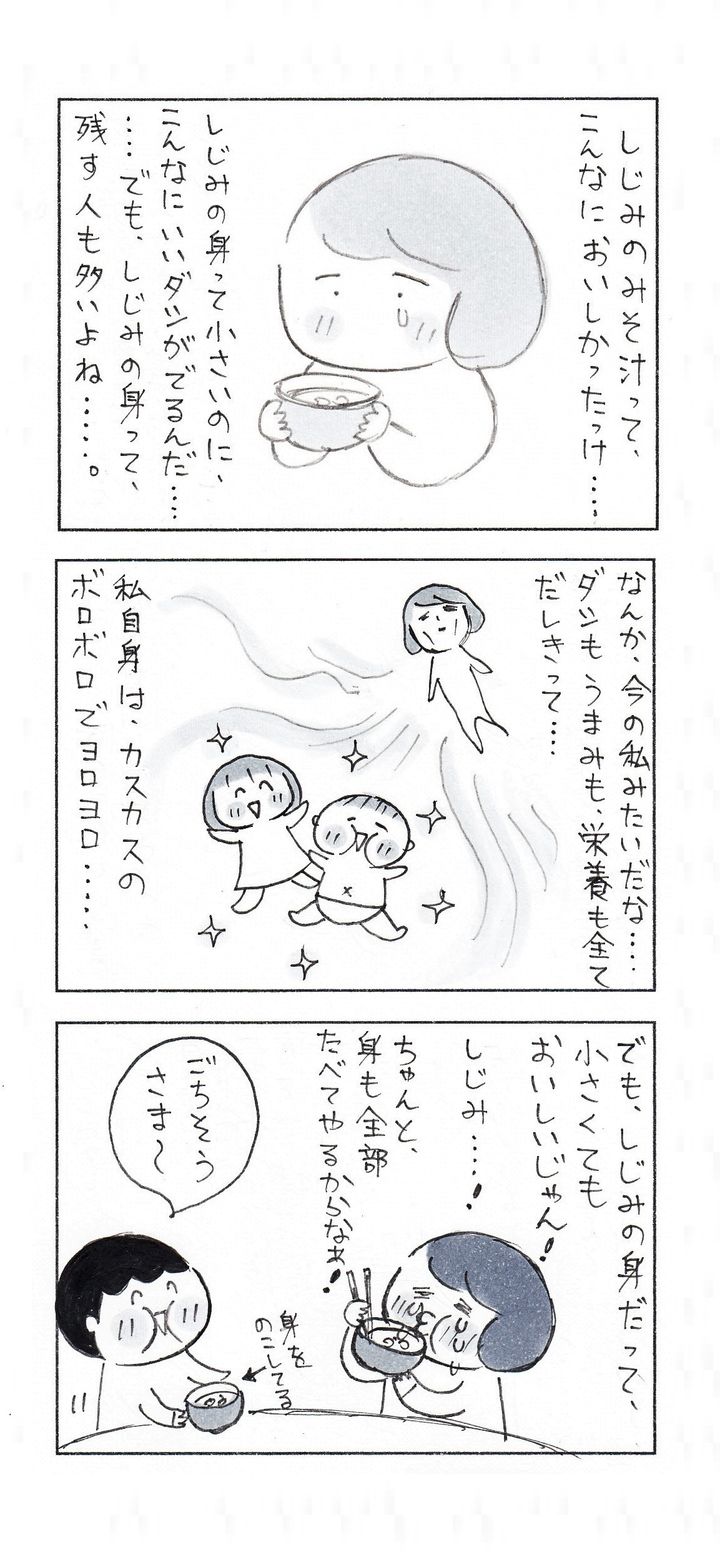 しじみのみそ汁って、
こんなにおいしかったっけ‥‥
しじみの身って小さいのに、
こんなにいいダシがでるんだ‥‥
‥‥でも、しじみの身って、
残す人も多いよね‥‥‥。
なんか、今の私みたいだな‥‥
ダシもうまみも、栄養も全て
だしきって‥‥
私自身は、カスカスの
ボロボロでヨロヨロ‥‥‥
でも、しじみの身だって、
小さくても
おいしいじゃん!
しじみ‥‥!
ちゃんと、
身も全部
たべてやるからなぁ!
ごちそう
さま〜
身を
のこしてる